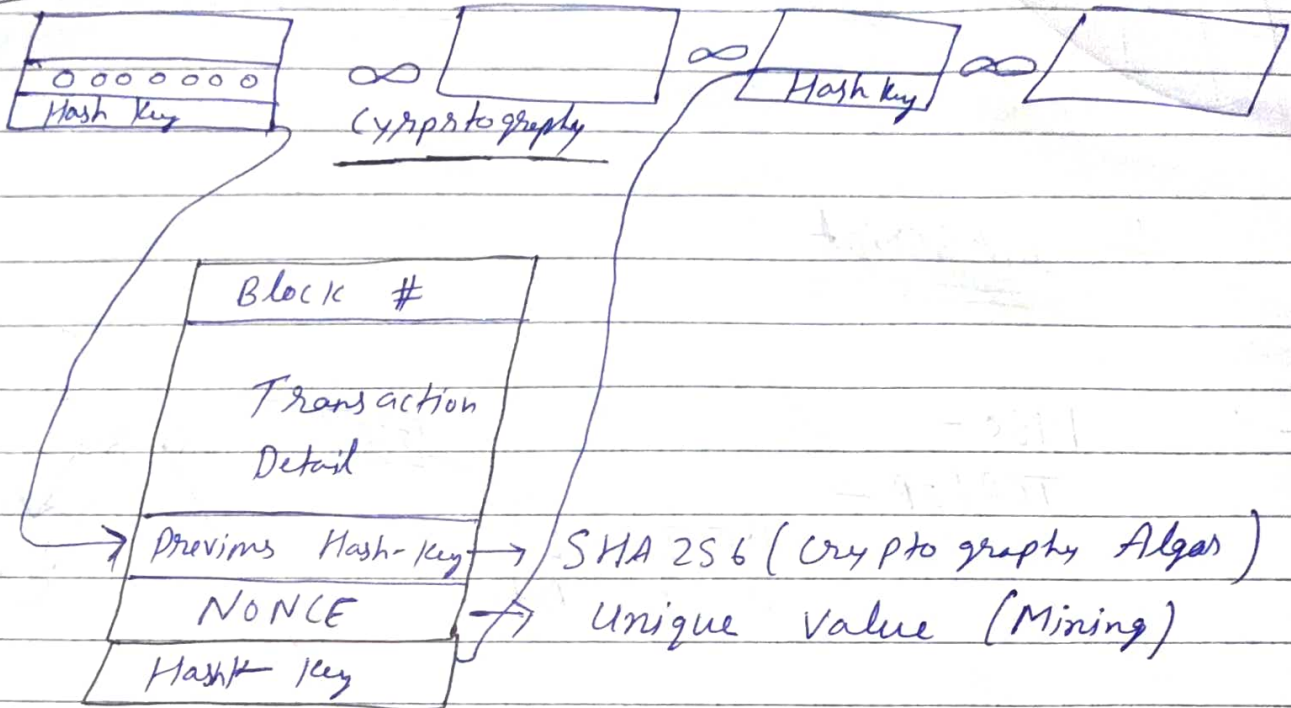 o oo o o o o
Hash Key
∞
Cyrprtography
∞
Hash Key
∞
Block #
Transaction
Detail
Previous Hash-Key → SHA 256 (Cryptography Algos)
NONCE → Unique Value (Mining)
Hash Key